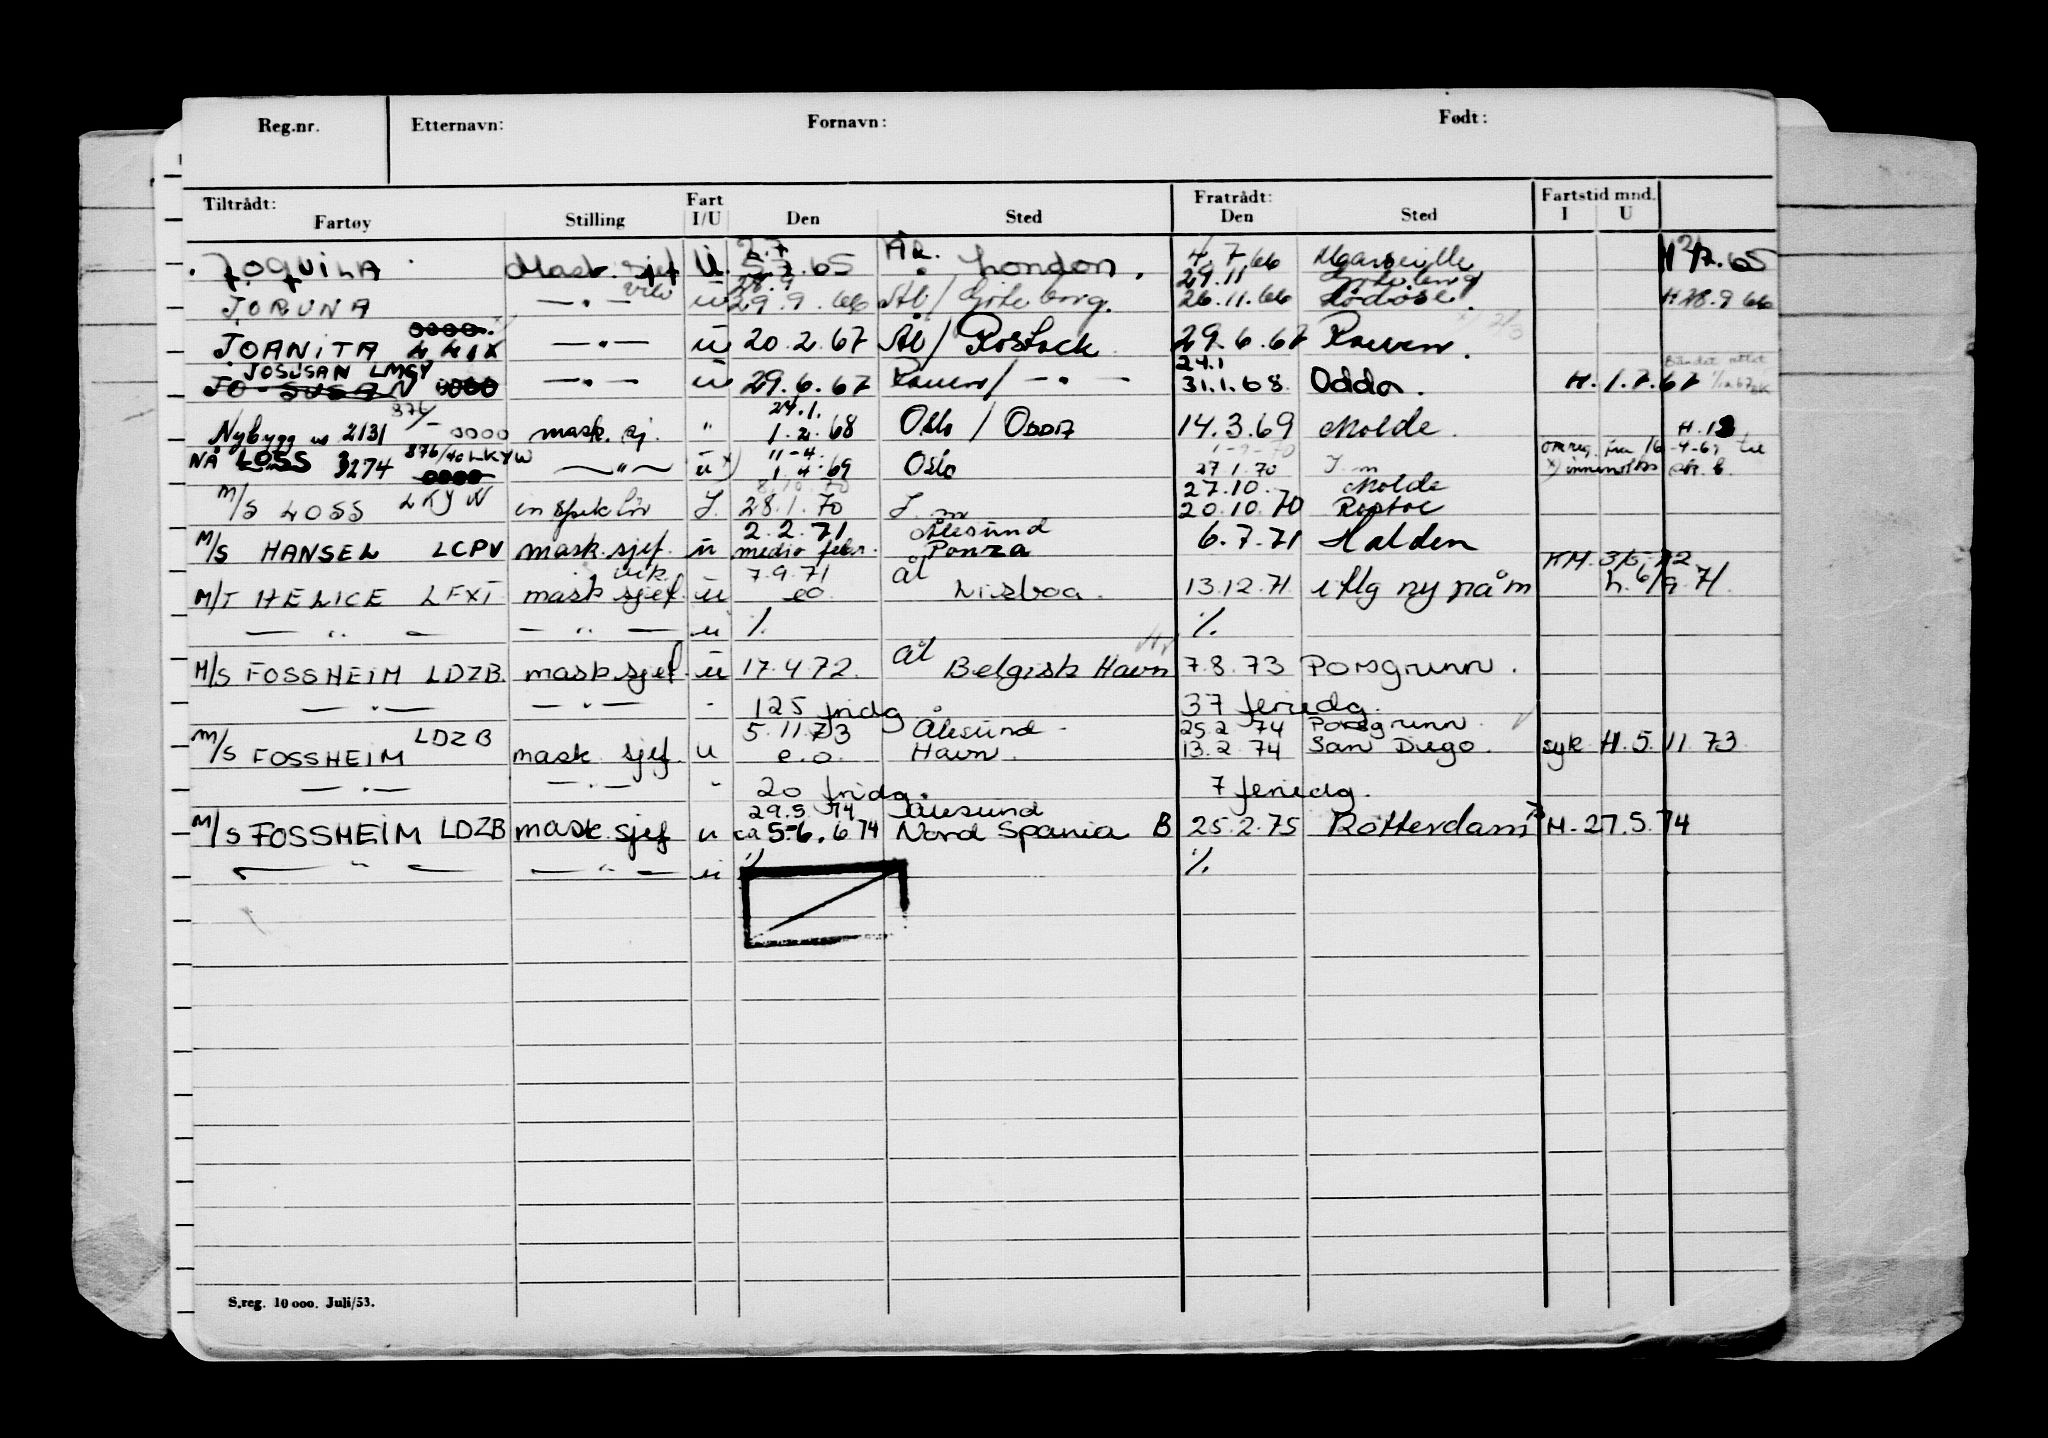 Reg.nr. Etternavn: Fornavn: Født:
Tiltrådt: Fart Fratrådt: Fartstid mnd.
Fartøy Stilling I/U Den Sted Den Sted I U
JOQUILA Mask. sjef U. 2.7 5.7.65 Ål. London. 4.7.66 Marseille H 2/7.65
28.9 29.11 Göteborg
JORUNA — " — vik u 29.9.66 Ål/Göteborg. 26.11.66 H 28.9 66
JOANITA — " — u 20.2.67 Ål/Rostock 29.6.67 Rouen.
JOSUSAN LMGY 24.1
JO-SUSAN — " — u 29.6.67 Rouen/ — " — 31.1.68. Odda. H. 1.7.67
876/- 24.1.
Nybygg nr 2131 mask. sj. " 1.2.68 Oslo / Odda 14.3.69 Molde. H. 13
876/40 LKYW 11-4. 1-9-70 omreg. fra 16-4-69 til
NÅ LOSS 3274 — " — u x) 1.4.69 Oslo 27.1.70 J. m x) innenriks
8.10.70 27.10. Molde
M/S LOSS LKYW inspektør J. 28.1.70 J. m 20.10.70
2.2.71 Ålesund
M/S HANSEL LCPV mask. sjef. u medio febr. Ponza 6.7.71 Halden
vik. 7.9.71 ål KM. 3/5.72
M/T HELICE LFXI mask sjef. u eo Lisboa. 13.12.71 i flg ny påm h. 6/9.71.
— " — — " — u ./. ./.
M/S FOSSHEIM LDZB. mask. sjef. u 17.4.72. ål Belgisk Havn 7.8.73 Porsgrunn.
— " — — " — " 125 fridg. 37 feriedg.
LDZB 5.11 73 Ålesund 25.2 74 Porsgrunn
M/S FOSSHEIM mask sjef. u e.o. Havn. 13.2.74 San Diego. syk H. 5.11 73
— " — — " — " 20 fridg. 7 feriedg.
29.5.74 Ålesund
M/S FOSSHEIM LDZB mask. sjef u ca 5-6.6.74 Nord Spania B 25.2.75 Rotterdam H. 27.5.74
— " — — " — u ./. ./.
S.reg. 10 000. Juli/53.